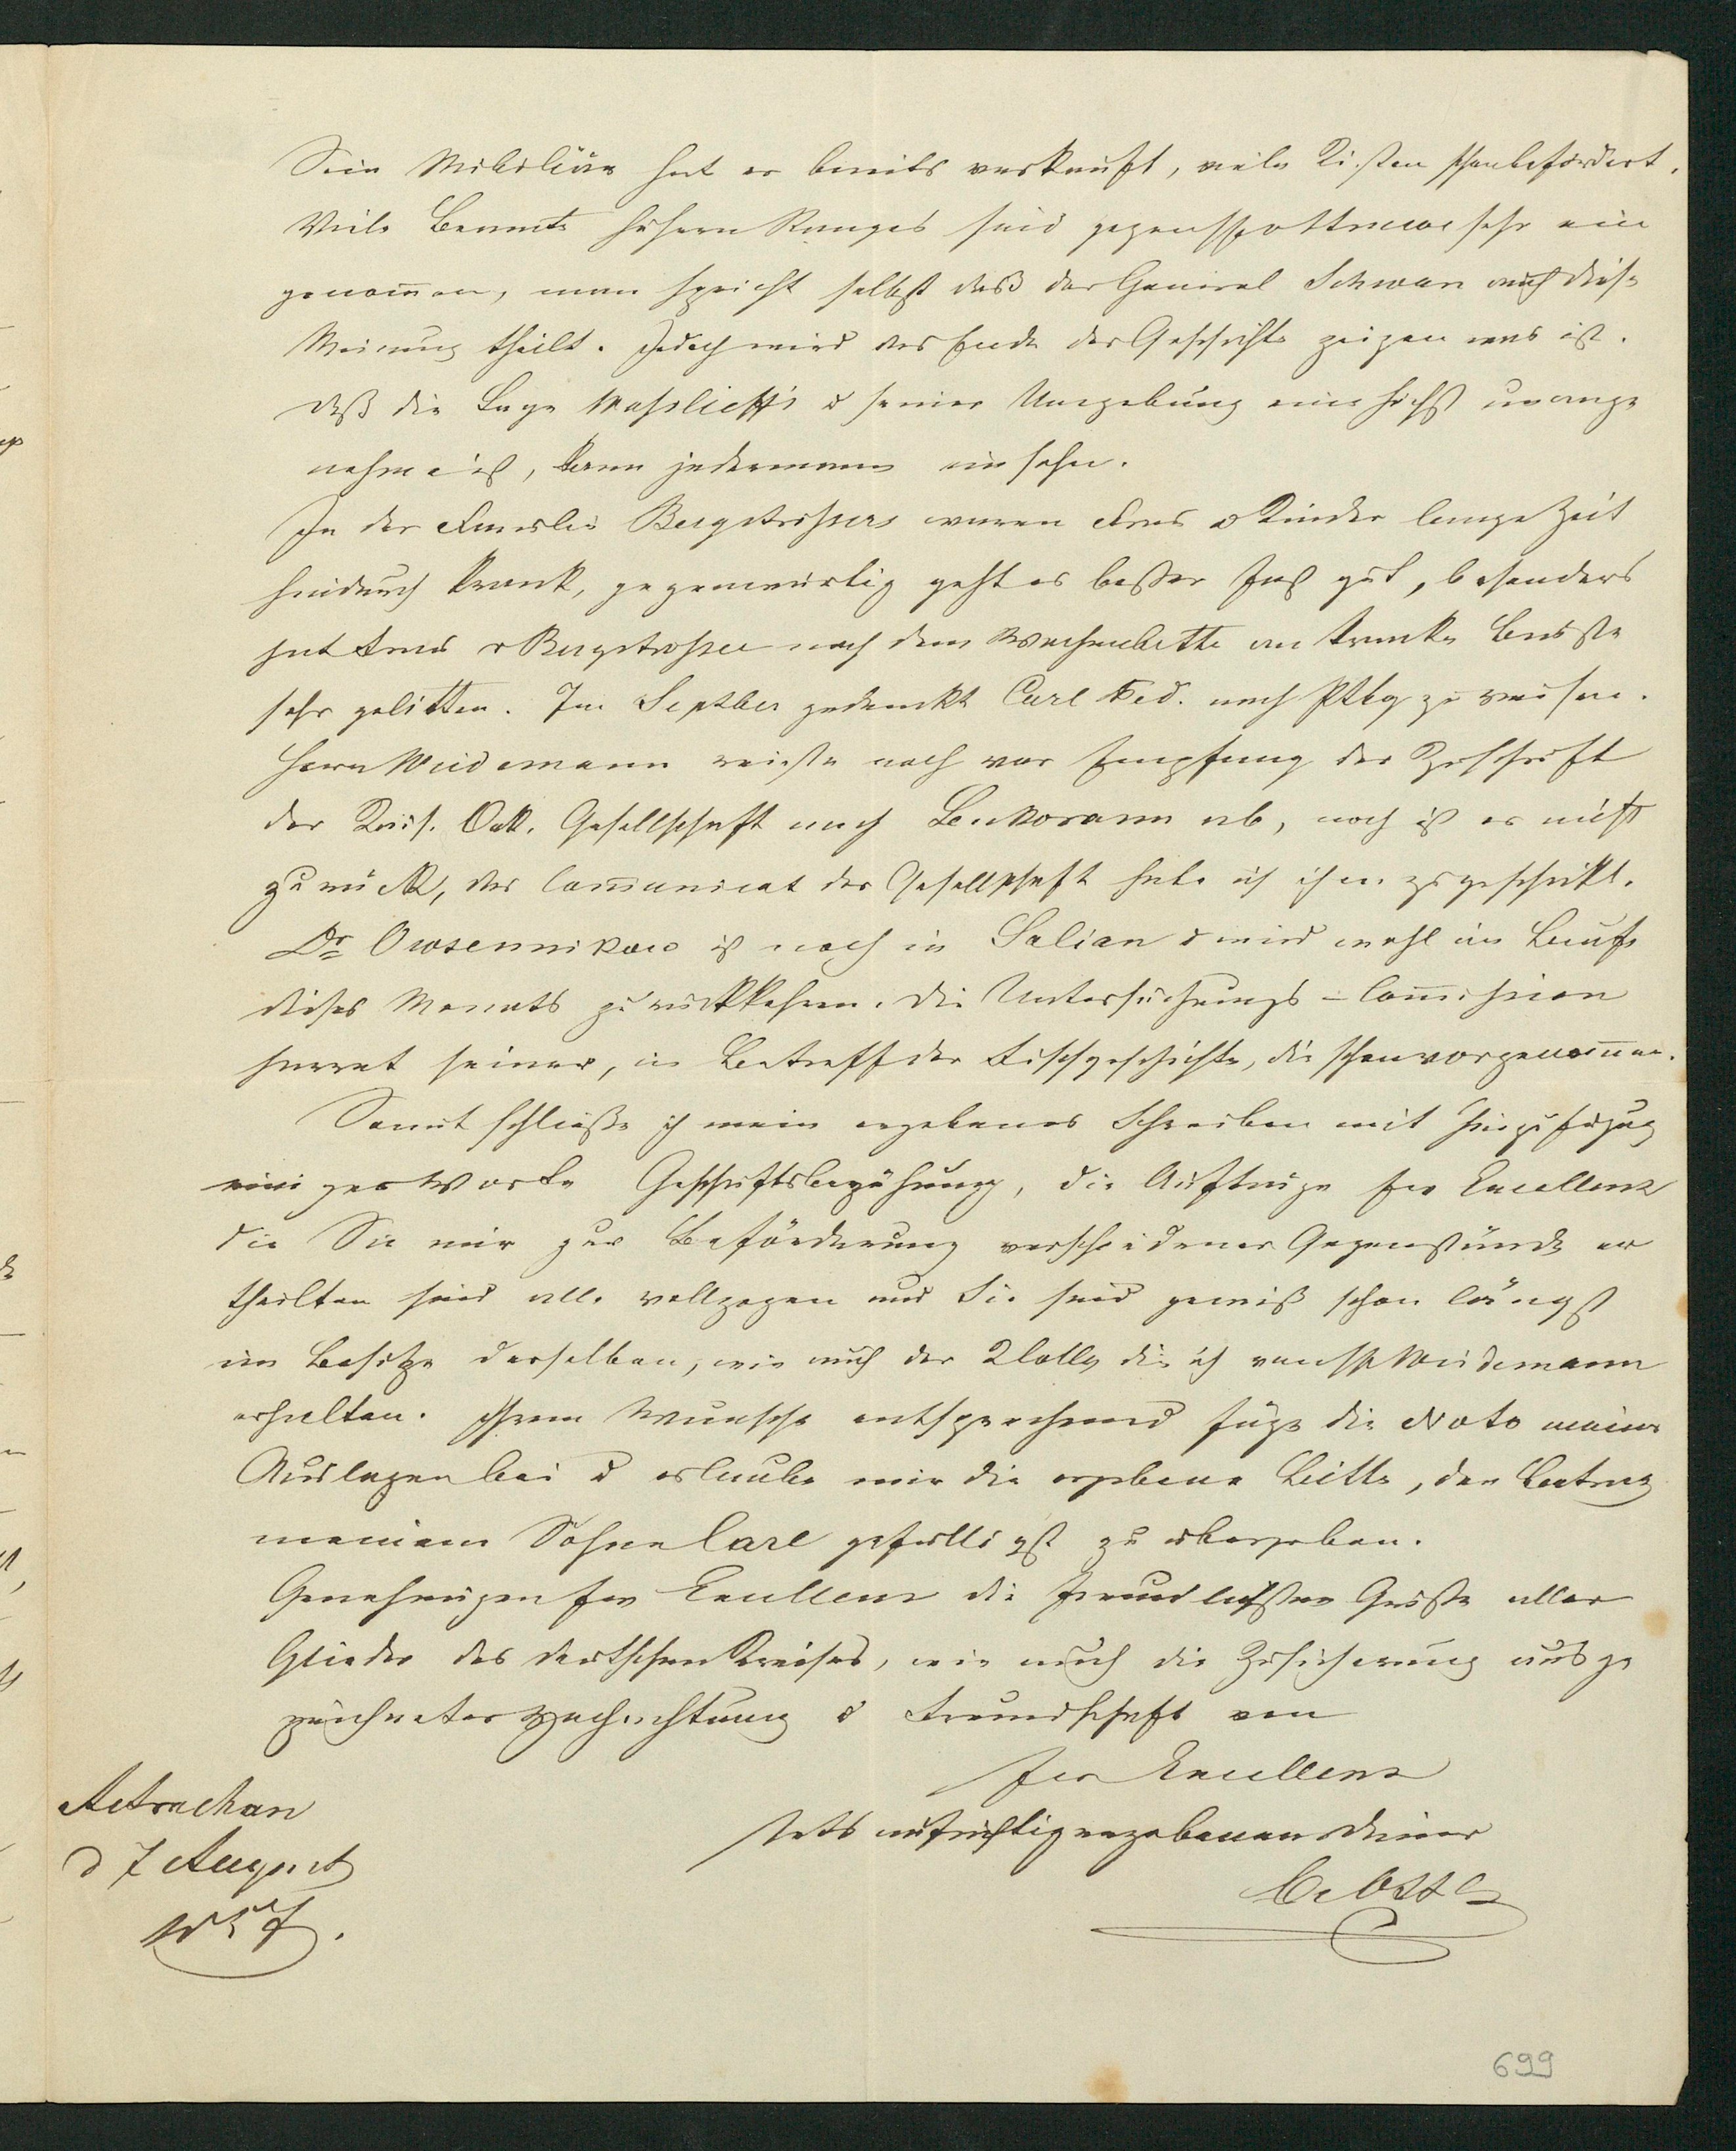 Sein Mobiliär hat er bereits verkauft, viele Kisten schon befördert.
Viele Beamte höhern Ranges sind gegen sehr ein
genom̄en, man spricht selbst daß der General Schwan auch diese
Meinung theilt. Jedoch wird das Ende der Geschichte zeigen was ist.
Daß die Lage Wassilieff's & seiner Umgebung eine höchst unange
nehme ist, kann jedermann einsehn.
In der Familie Bergstrssers waren Frau & Kinder lange Zeit
hindurch krank, gegenwärtig geht es besser fast gut, besonders
hat Frau v Bergstrsser nach dem Wochenbette an kranker Brüste
sehr gelitten. Im Septber gedenkt Carl Fed. nach Ptbg zu reisen.
Herr Weidemann reiste noch vor Empfang der Zuschrift
der Kais. Gesellschaft nach Lenkorann ab, noch ist er nicht
zurück, das Com̄unicat der Gesellschaft habe ich ihm zugeschickt.
Dr Owsennikow ist noch in Salian & wird wohl im Laufe
dieses Monats zurückkehren. Die Untersuchungs-Com̄ission
harret seiner, in Betreff der Fischgeschichte, die schon vorgenom̄en.
Somit schließe ich mein ergebenes Schreiben mit Hinzufügug
einiger Worte Geschäftsbeziehung, die Aufträge Ew Excellenz
die Sie mir zur Beförderung verschiedener Gegenstände er
theilten sind alle vollzogen und Sie sind gewiß schon längst
im Besitze derselben, wie auch der 2 die ich von H Weidemann
erhalten. Ihrem Wunsche entsprechend füge die Nota meiner
Auslagen bei & erlaube mir die ergebene Bitte, den Betrag
meinem Sohne Carl gefälligst zu übergeben.
Genehmigen Ew Excellenz die freundlichsten Grüße aller
Glieder des deutschen Kreises, wie auch die Zusicherung ausge
zeichneter Hochachtung & Freundschaft von
Ew Excellenz
stets aufrichtig ergebenen Diener
C. Osse
Astrachan
d 7 August
1857.
699